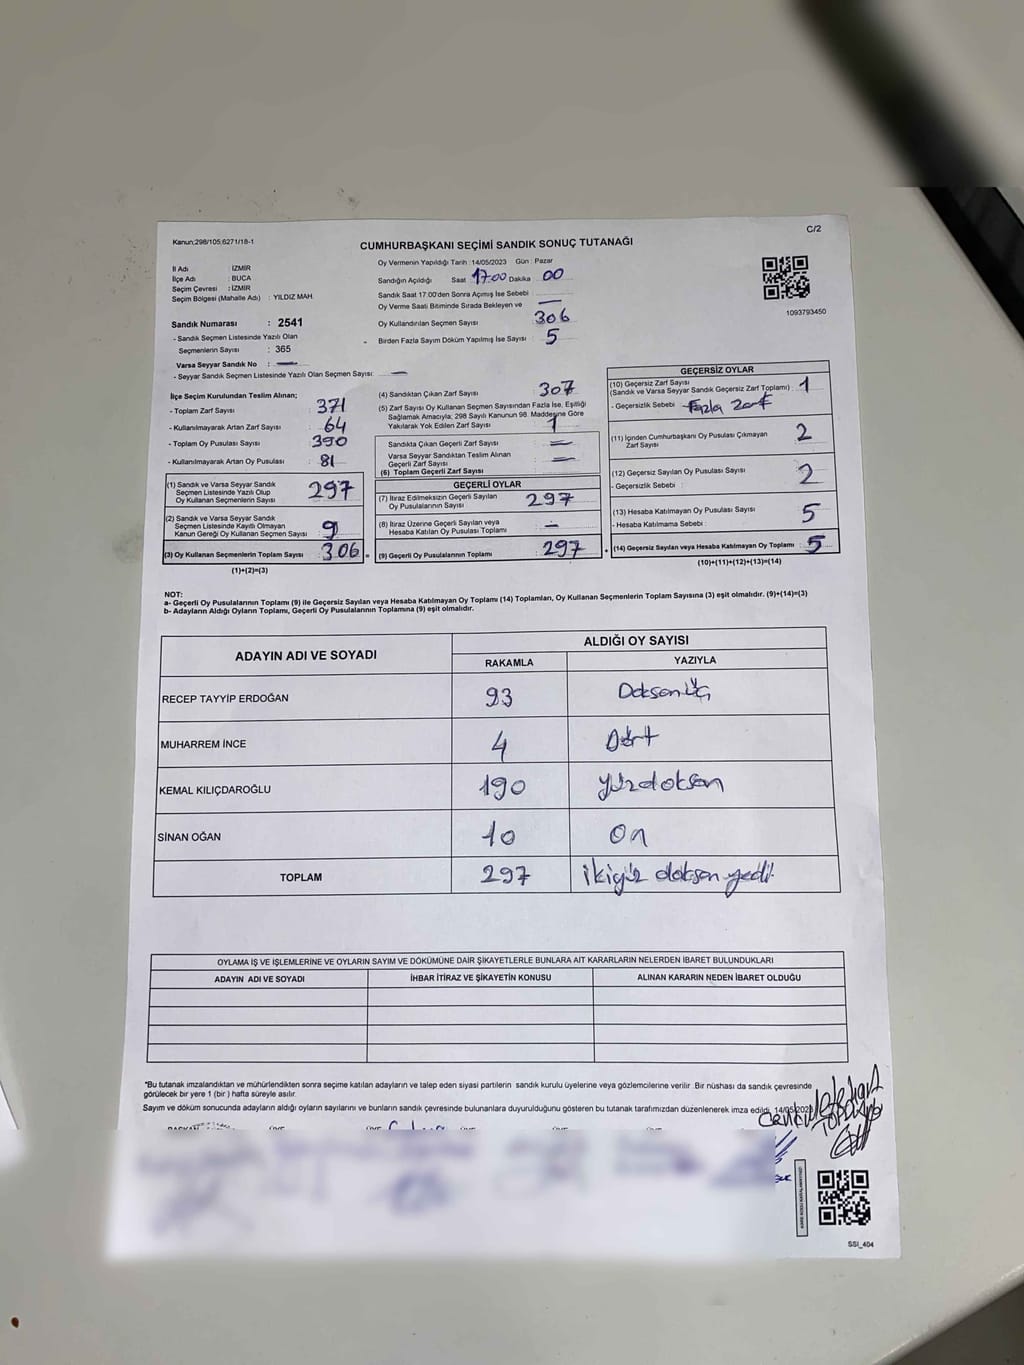 C/2
Kanun:298/105;6271/18-1
CUMHURBAŞKANI SEÇİMİ SANDIK SONUÇ TUTANAĞI
İl Adı : İZMİR
İlçe Adı : BUCA
Seçim Çevresi : İZMİR
Seçim Bölgesi (Mahalle Adı) : YILDIZ MAH.
Sandık Numarası : 2541
- Sandık Seçmen Listesinde Yazılı Olan
Seçmenlerin Sayısı : 365
Varsa Seyyar Sandık No : —
- Seyyar Sandık Seçmen Listesinde Yazılı Olan Seçmen Sayısı: —
Oy Vermenin Yapıldığı Tarih : 14/05/2023 Gün : Pazar
Sandığın Açıldığı Saat 17:00 Dakika 00
Sandık Saat 17:00'den Sonra Açmış İse Sebebi :
Oy Verme Saati Bitiminde Sırada Bekleyen ve —
Oy Kullandırılan Seçmen Sayısı 306
- Birden Fazla Sayım Döküm Yapılmış İse Sayısı : 5
1093793450
İlçe Seçim Kurulundan Teslim Alınan;
- Toplam Zarf Sayısı : 371
- Kullanılmayarak Artan Zarf Sayısı : 64
- Toplam Oy Pusulası Sayısı : 390
- Kullanılmayarak Artan Oy Pusulası : 81
(1) Sandık ve Varsa Seyyar Sandık
Seçmen Listesinde Yazılı Olup
Oy Kullanan Seçmenlerin Sayısı : 297
(2) Sandık ve Varsa Seyyar Sandık
Seçmen Listesinde Kayıtlı Olmayan
Kanun Gereği Oy Kullanan Seçmen Sayısı : 9
(3) Oy Kullanan Seçmenlerin Toplam Sayısı : 306 =
(1)+(2)=(3)
(4) Sandıktan Çıkan Zarf Sayısı : 307
(5) Zarf Sayısı Oy Kullanan Seçmen Sayısından Fazla İse, Eşitliği
Sağlamak Amacıyla; 298 Sayılı Kanunun 98. Maddesine Göre
Yakılarak Yok Edilen Zarf Sayısı : 1
Sandıkta Çıkan Geçerli Zarf Sayısı :
Varsa Seyyar Sandıktan Teslim Alınan
Geçerli Zarf Sayısı :
(6) Toplam Geçerli Zarf Sayısı
GEÇERLİ OYLAR
(7) İtiraz Edilmeksizin Geçerli Sayılan
Oy Pusulalarının Sayısı : 297
(8) İtiraz Üzerine Geçerli Sayılan veya
Hesaba Katılan Oy Pusulası Toplamı : —
(9) Geçerli Oy Pusulalarının Toplamı : 297
GEÇERSİZ OYLAR
(10) Geçersiz Zarf Sayısı
(Sandık ve Varsa Seyyar Sandık Geçersiz Zarf Toplamı) : 1
- Geçersizlik Sebebi : Fazla Zarf
(11) İçinden Cumhurbaşkanı Oy Pusulası Çıkmayan
Zarf Sayısı : 2
(12) Geçersiz Sayılan Oy Pusulası Sayısı : 2
- Geçersizlik Sebebi :
(13) Hesaba Katılmayan Oy Pusulası Sayısı : 5
- Hesaba Katılmama Sebebi :
+ (14) Geçersiz Sayılan veya Hesaba Katılmayan Oy Toplamı : 5
(10)+(11)+(12)+(13)=(14)
NOT:
a- Geçerli Oy Pusulalarının Toplamı (9) ile Geçersiz Sayılan veya Hesaba Katılmayan Oy Toplamı (14) Toplamları, Oy Kullanan Seçmenlerin Toplam Sayısına (3) eşit olmalıdır. (9)+(14)=(3)
b- Adayların Aldığı Oyların Toplamı, Geçerli Oy Pusulalarının Toplamına (9) eşit olmalıdır.
ADAYIN ADI VE SOYADI
ALDIĞI OY SAYISI
RAKAMLA YAZIYLA
RECEP TAYYİP ERDOĞAN 93 Doksan Üç
MUHARREM İNCE 4 Dört
KEMAL KILIÇDAROĞLU 190 yüzdoksan
SİNAN OĞAN 10 On
TOPLAM 297 ikiyüz doksan yedi
OYLAMA İŞ VE İŞLEMLERİNE VE OYLARIN SAYIM VE DÖKÜMÜNE DAİR ŞİKAYETLERLE BUNLARA AİT KARARLARIN NELERDEN İBARET BULUNDUKLARI
ADAYIN ADI VE SOYADI İHBAR İTİRAZ VE ŞİKAYETİN KONUSU ALINAN KARARIN NEDEN İBARET OLDUĞU
*Bu tutanak imzalandıktan ve mühürlendikten sonra seçime katılan adayların ve talep eden siyasi partilerin sandık kurulu üyelerine veya gözlemcilerine verilir .Bir nüshası da sandık çevresinde
görülecek bir yere 1 (bir ) hafta süreyle asılır.
Sayım ve döküm sonucunda adayların aldığı oyların sayılarını ve bunların sandık çevresinde bulunanlara duyurulduğunu gösteren bu tutanak tarafımızdan düzenlenerek imza edildi. 14/05/2023
SSI_404